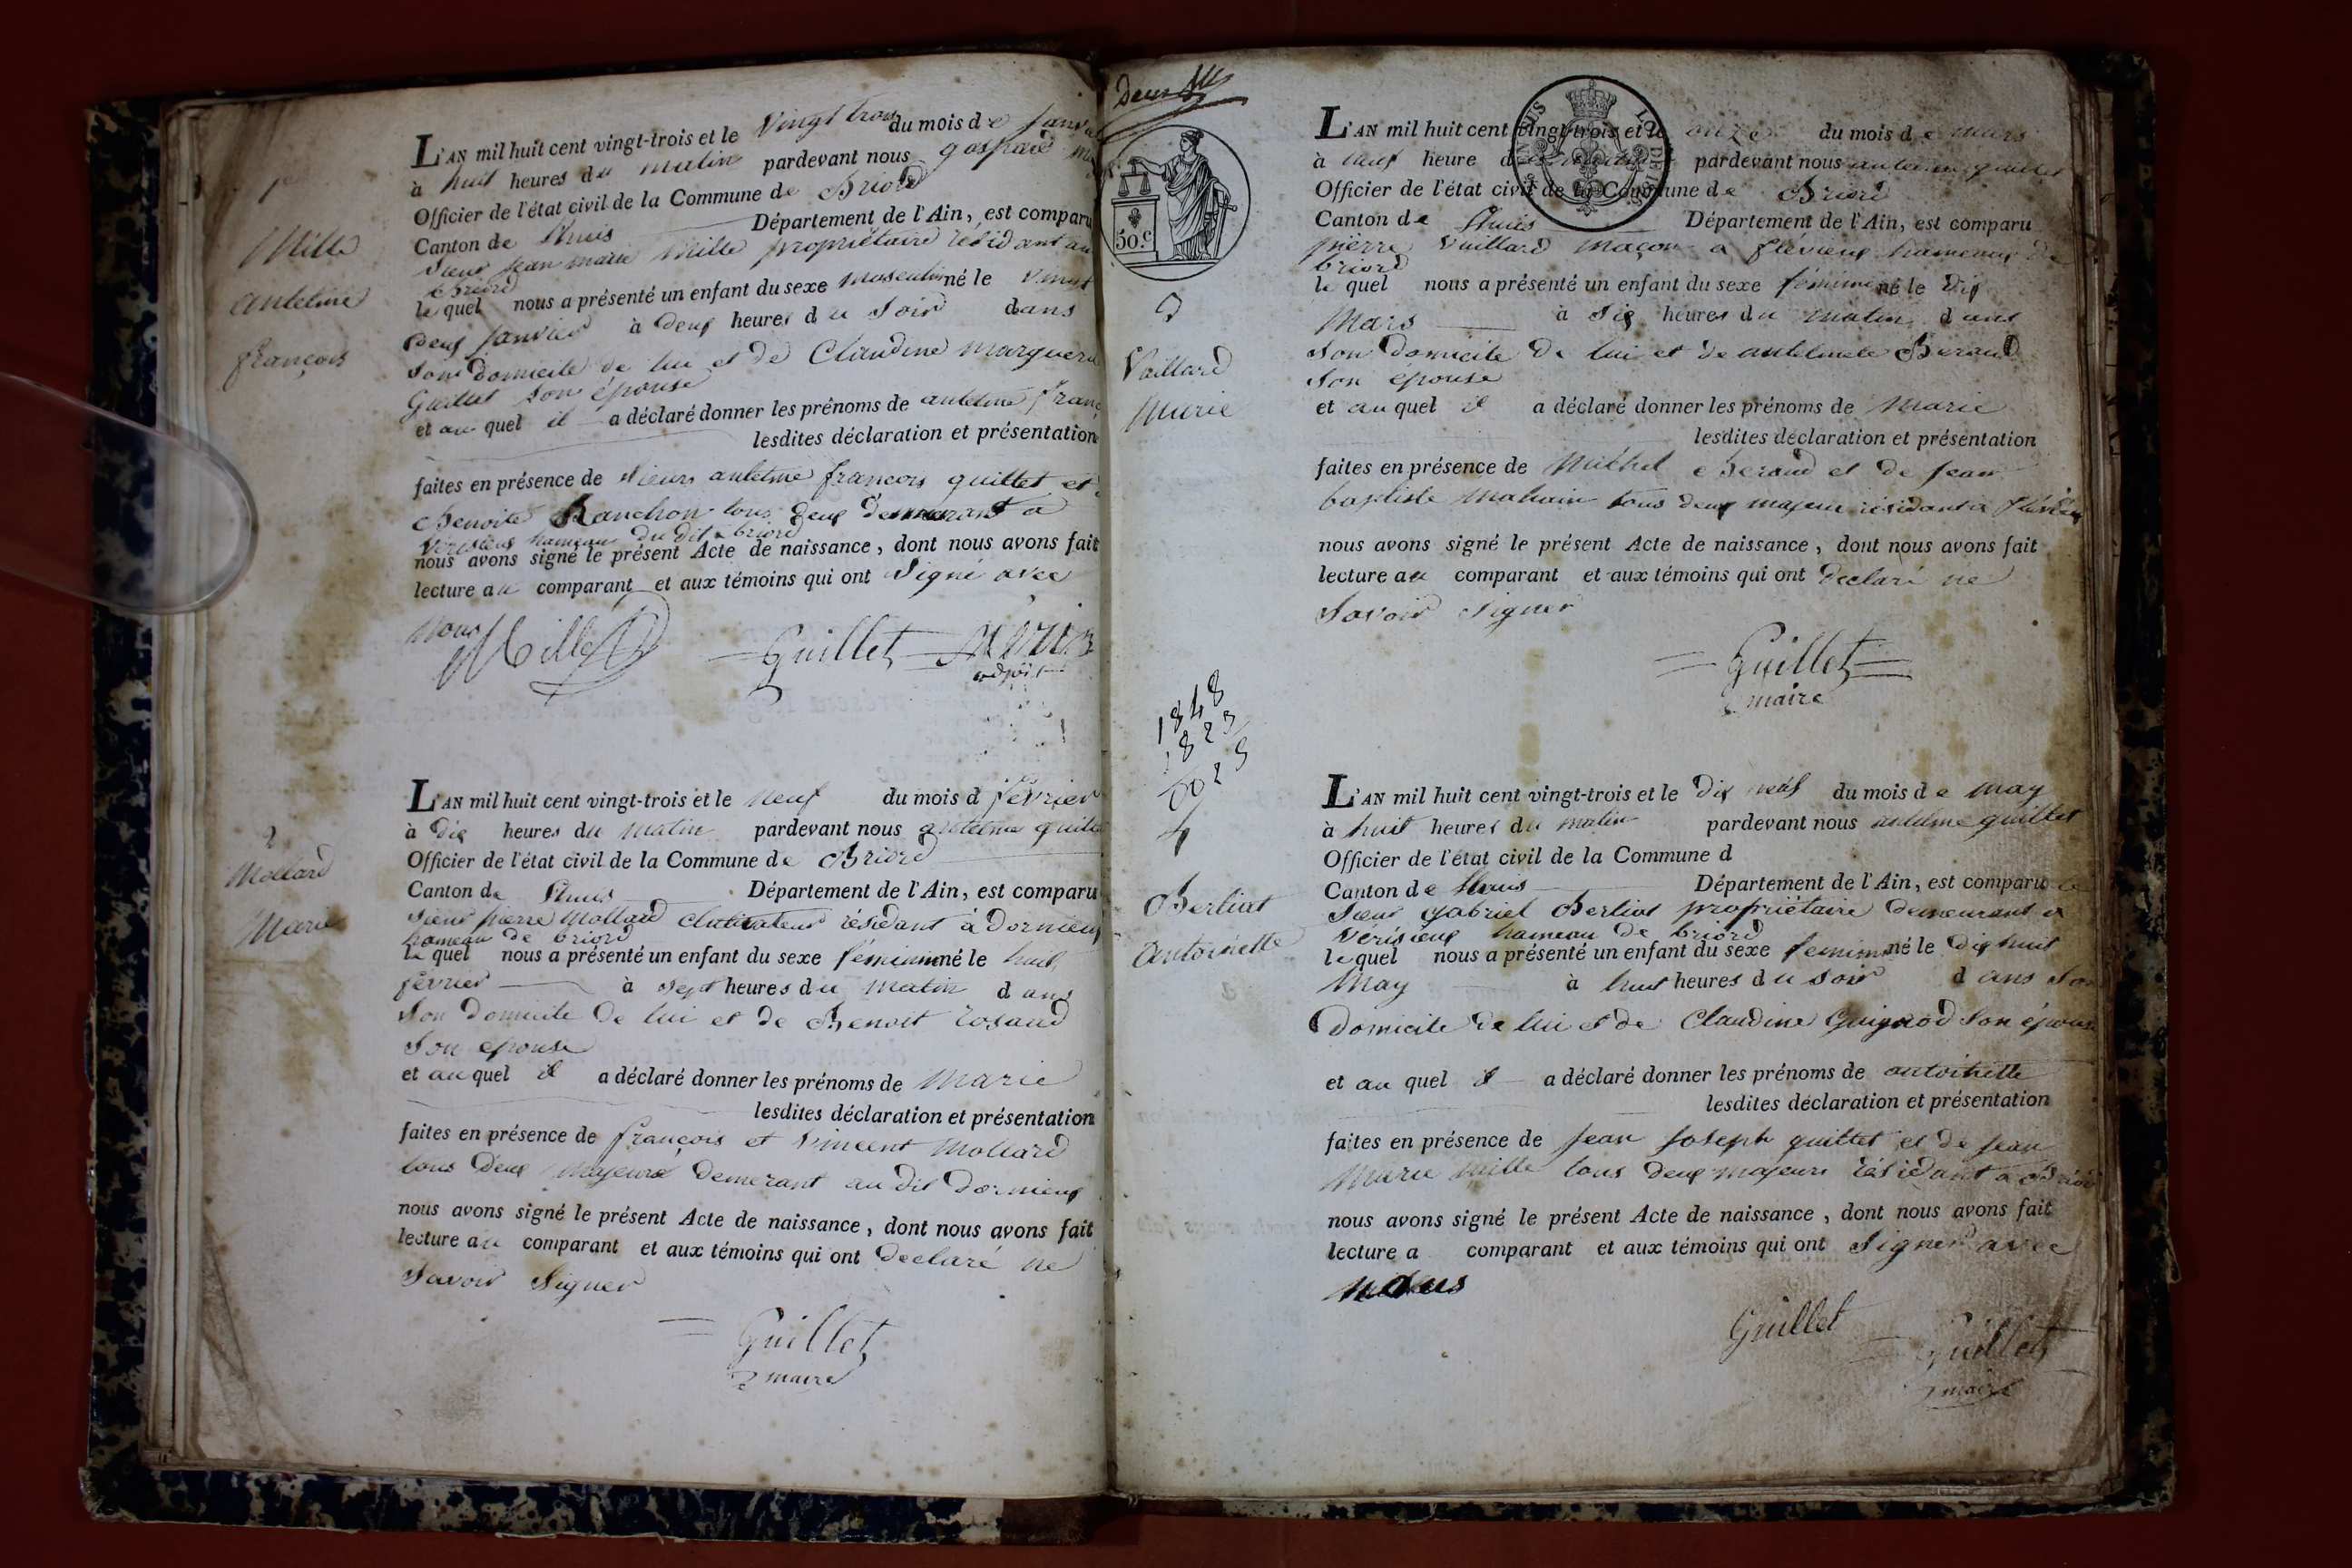 1er
Mille
antelme
françois
L'AN mil huit cent vingt-trois et le vingt trois du mois de Janvi
à huit heures du matin pardevant nous gaspard
Officier de l'état civil de la Commune de Briord
Canton de Lhuis Département de l'Ain, est comparu
Sieur jean marie Mille propriétaire résidant au
Briord
lequel nous a présenté un enfant du sexe masculin né le vingt
deux Janvier à deux heures du Soir dans
son domicile de lui et de Claudine marguerite
Guillet son épouse
et au quel il a déclaré donner les prénoms de antelme franç
lesdites déclaration et présentation
faites en présence de Sieurs antelme françois guillet et
Benoite Ranchon tous deux demeurant a
Vérisieux hameau du dit briord
nous avons signé le présent Acte de naissance, dont nous avons fait
lecture au comparant et aux témoins qui ont Signé avec
nous
Mille Guillet
adjoint
2
Mollard
Marie
L'AN mil huit cent vingt-trois et le neuf du mois d février
à dix heures du matin pardevant nous antelme guillet
Officier de l'état civil de la Commune de Briord
Canton de Lhuis Département de l'Ain, est comparu
Sieur pierre Mollard Cultivateur résidant à Dornieux
hameau de briord
le quel nous a présenté un enfant du sexe féminin né le huit
février à sept heures du matin dans
Son domicile de lui et de Benoit rosand
Son épouse
et au quel il a déclaré donner les prénoms de Marie
lesdites déclaration et présentation
faites en présence de françois et Vincent Mollard
tous deux majeurs demerant au dit Dornieux
nous avons signé le présent Acte de naissance, dont nous avons fait
lecture au comparant et aux témoins qui ont declaré ne
Savoir Signer
Guillet
maire
Deux
50.c
3
Vuillard
Marie
L'AN mil huit cent vingt-trois et le onze du mois de mars
à neuf heure du matin pardevant nous antelme guillet
Officier de l'état civil de la Commune de Briord
Canton de Lhuis Département de l'Ain, est comparu
pierre Vuillard Maçon a flévieux hameaux de
briord
le quel nous a présenté un enfant du sexe féminin né le dix
Mars à Six heures du matin dans
Son domicile de lui et de antelmete Beraud
Son épouse
et au quel il a déclaré donner les prénoms de Marie
lesdites déclaration et présentation
faites en présence de Michel Beraud et de jean
baptiste tous deux majeur résidant a flévieux
nous avons signé le présent Acte de naissance, dont nous avons fait
lecture au comparant et aux témoins qui ont declaré ne
Savoir Signer
Guillet
maire
1848
1823
0025
4
Berliat
Antoinette
L'AN mil huit cent vingt-trois et le dix neuf du mois de may
à huit heures du matin pardevant nous antelme guillet
Officier de l'état civil de la Commune d
Canton de Lhuis Département de l'Ain, est comparu le
Sieur gabriel Berliat propriétaire demeurant a
Vérisieux hameau de briord
lequel nous a présenté un enfant du sexe feminin né le dix huit
May à huit heures du soir dans Son
domicile de lui et de Claudine Guignod Son épouse
et au quel il a déclaré donner les prénoms de antoinette
lesdites déclaration et présentation
faites en présence de jean joseph guillet et de jean
Marie Mille tous deux majeurs résidant a Briord
nous avons signé le présent Acte de naissance, dont nous avons fait
lecture a comparant et aux témoins qui ont Signer avec
nous
Guillet Guillet
maire